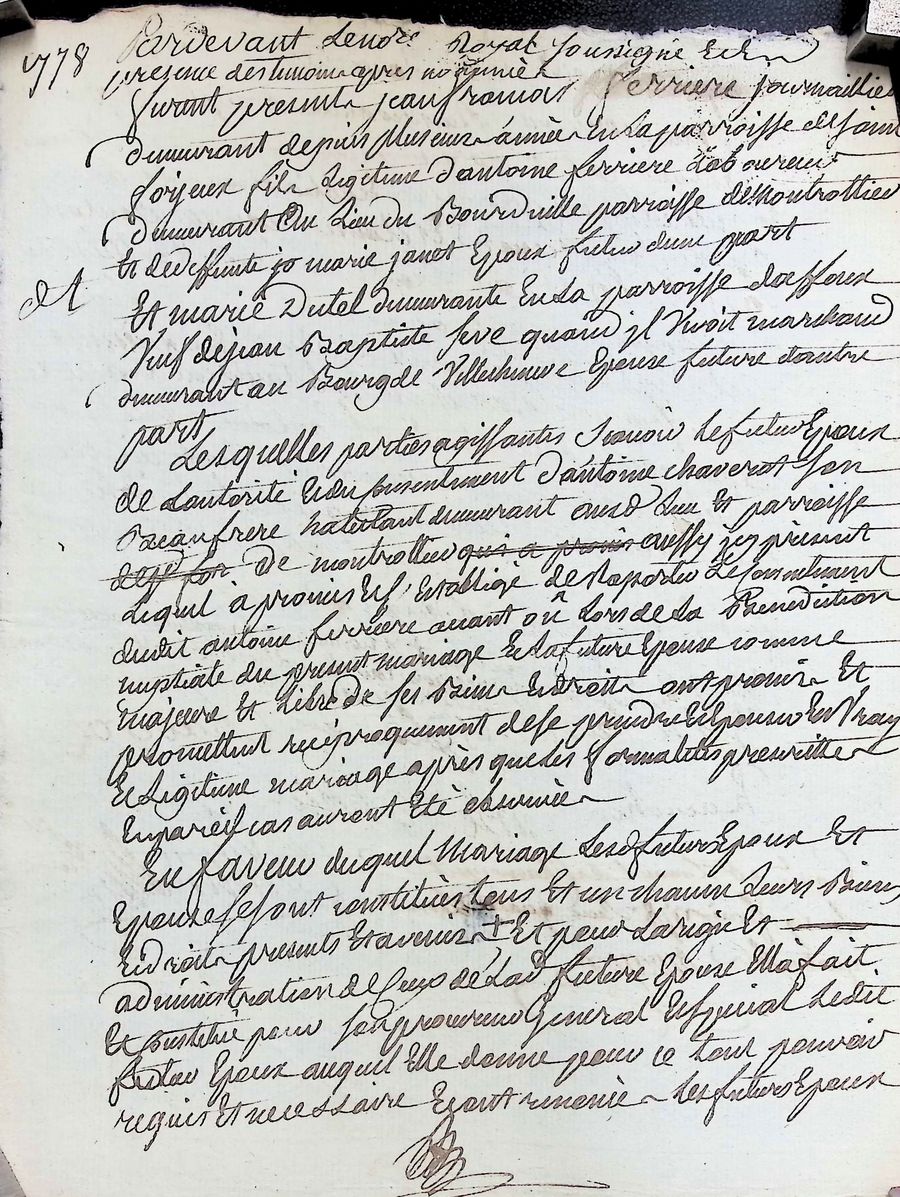 1778
Pardevant Le nore Royal soussigné Et En
presence des temoins apres nommés
furent presents jean francois ferriere journaillier
demeurant depuis plusieurs années En la parroisse de saint
forjeux fils Legitime d'antoine ferriere Laboureur
demeurant Au Lieu du Bourdville parroisse de montrottier
Et de deffunte jo marie janet Epoux futur d'une part
Et marie Dutel demeurante En La parroisse d'affoux
Veuve de jean Baptiste seve quand jl Vivoit marchand
demeurant au Bourg de Villecheneve Epouse future d'autre
part
Lesquelles parties agissantes scavoir Le futur Epoux
de Lautorité Et du consentement d'antoine chaverot son
Beaufrere habitant demeurant aud Lieu Et parroisse
de montrottier qui a promis aussy jcy présent
Lequel à promis Et s'est obligé de Raporter Le consentement
dudit antoine ferriere avant où Lors de La Benediction
nuptiale du présent mariage Et La future Epouse comme
majeure Et Libre de ses Biens Et droits ont promis Et
promettent reciproquement de se prendre Et Epouser En Vray
Et Legitime mariage après que les formalités prescrittes
En pareil cas auront été observées
En faveur duquel Mariage Lesd futurs Epoux Et
Epouse se sont constitués tous Et un chacun Leurs Biens
Et droits presents Et avenir + Et pour La regie Et
administration de Ceux de Lad future Epouse Ella fait
Et constitué pour son procureur General Et special Ledit
futur Epoux auquel Elle donne pour ce tout pouvoir
requis Et necessaire Les futurs Epoux